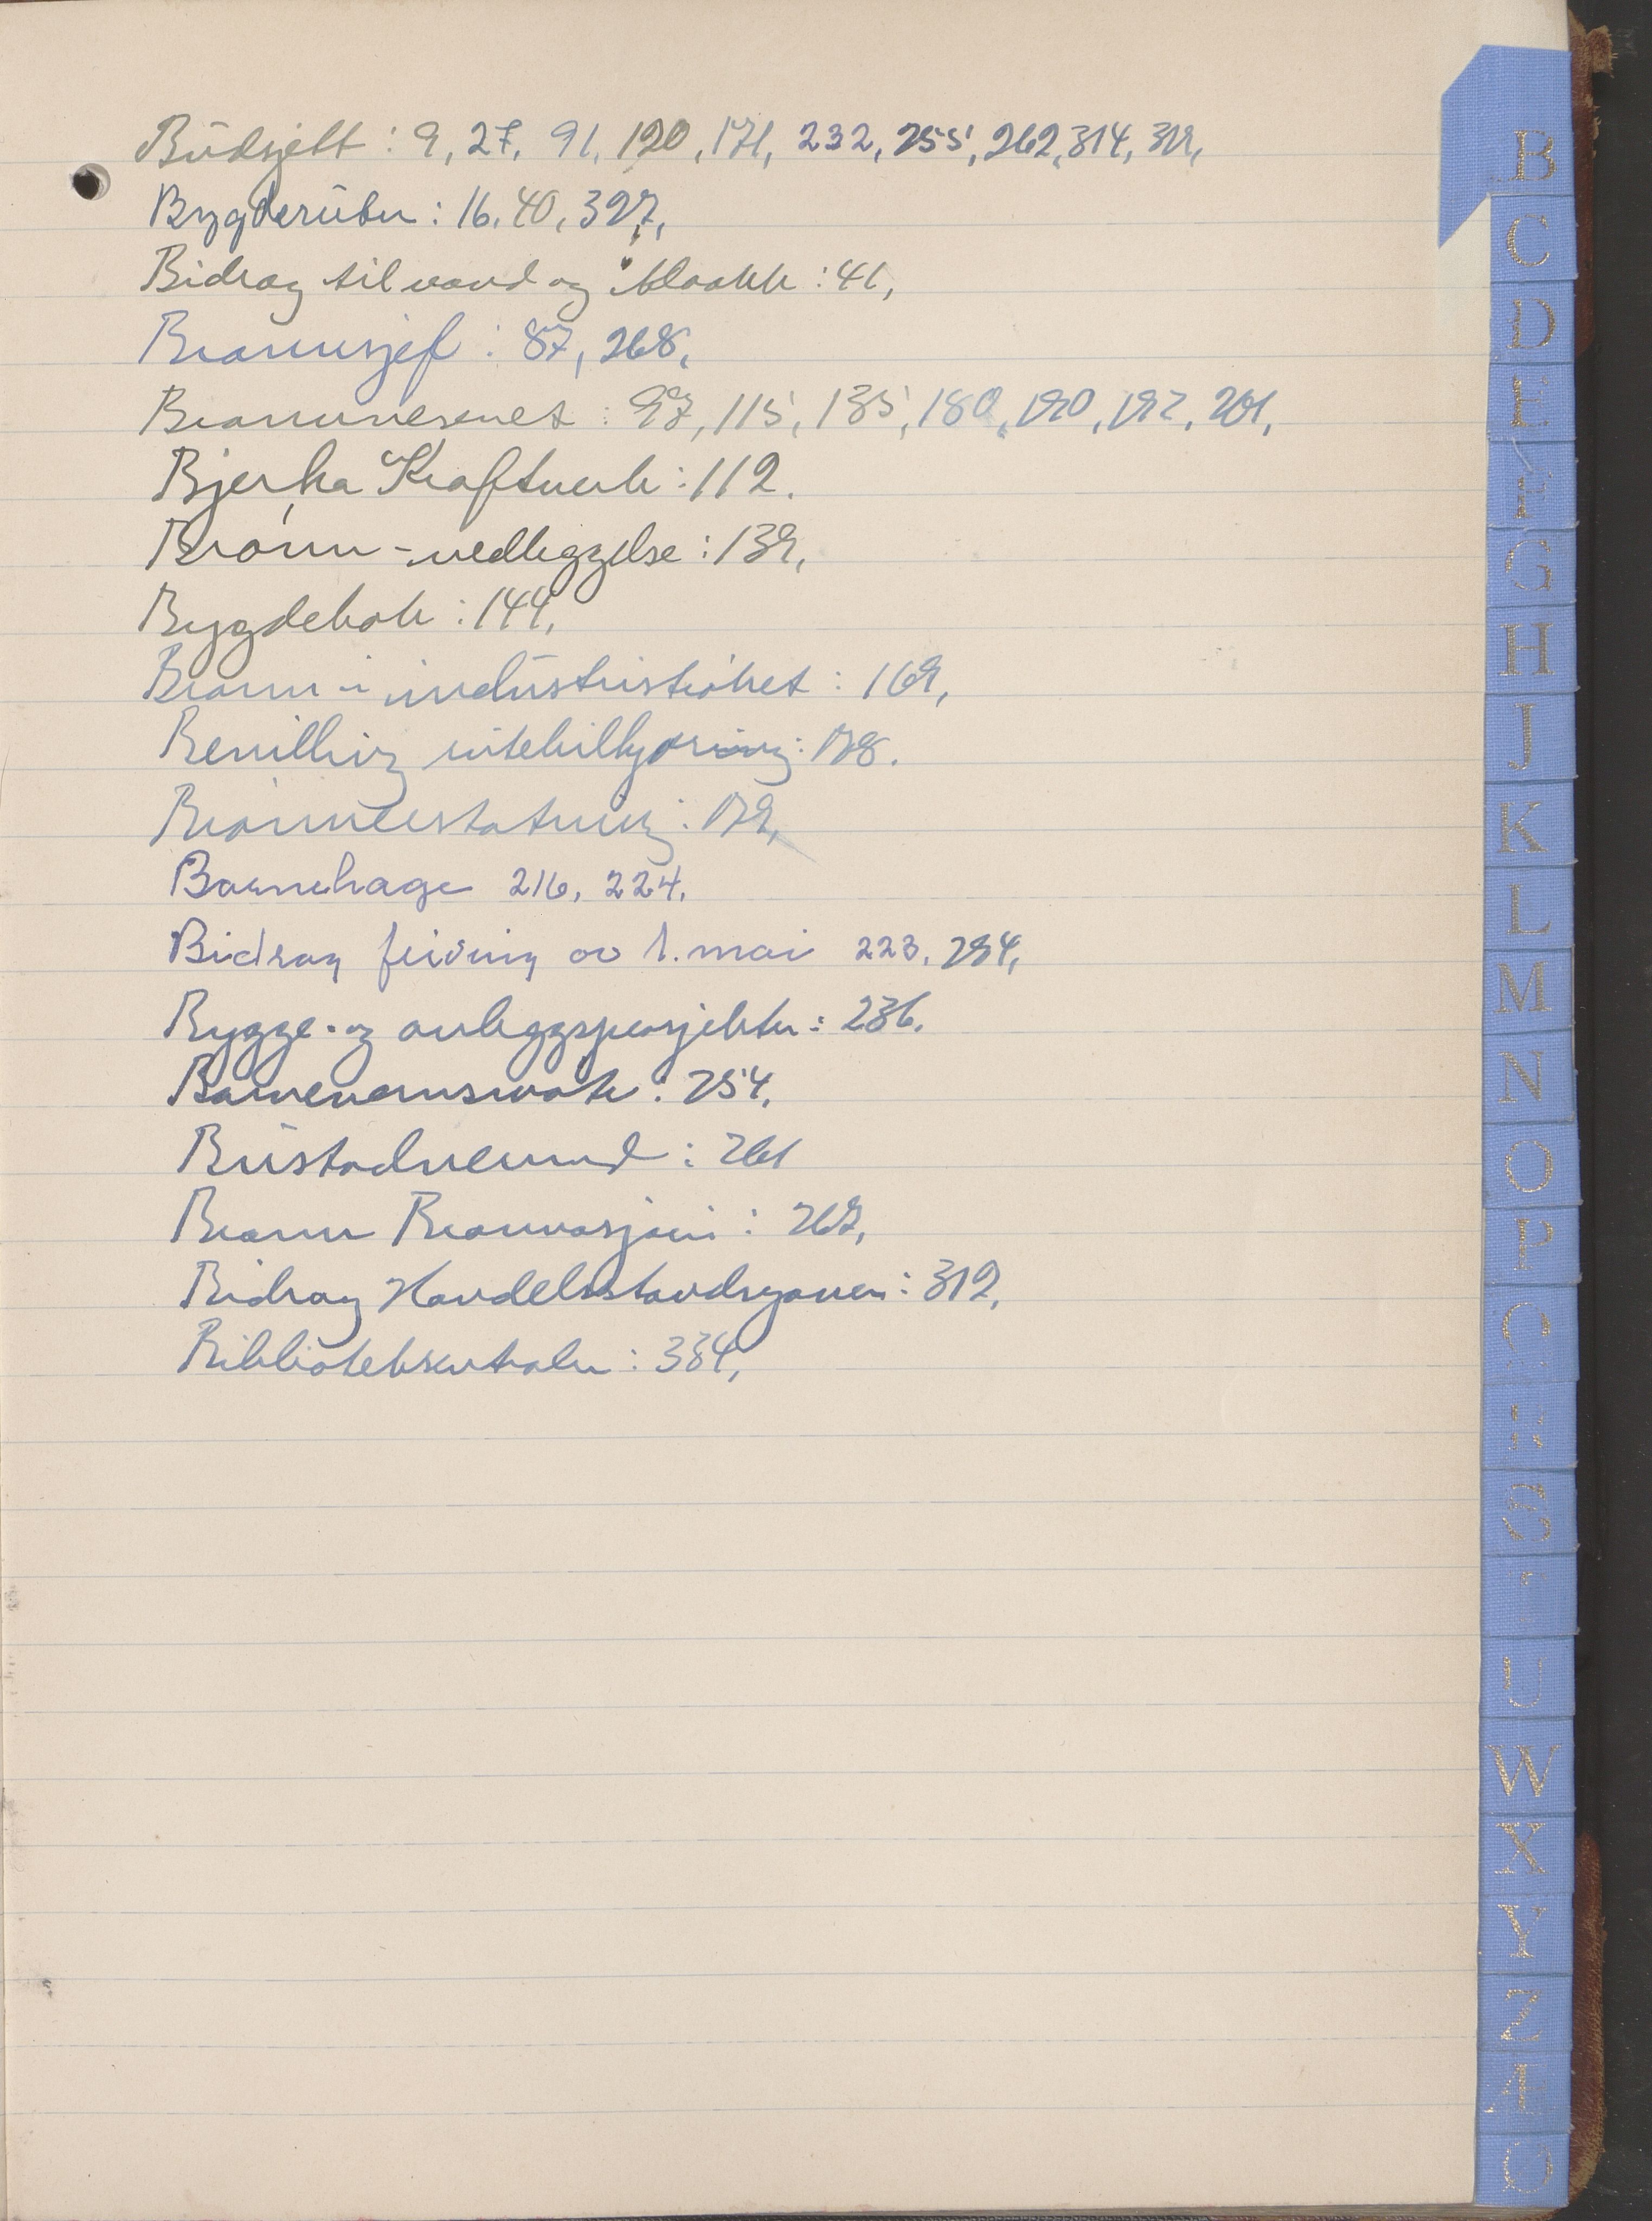 Budsjett : 9, 27, 91, 120, 171, 232, 255, 262, 314, 319,
Bygderuter : 16, 40, 327,
Bidrag til vand og kloakk : 41,
Brannsjef : 87, 268,
Brannvesenet : 97, 115, 135, 180, 190, 192, 201,
Bjerka Kraftverk : 112.
Brønn-nedleggelse : 139,
Bygdebok : 144,
Brann i industristrøket : 169,
Bevilling utebillyørøing : 178.
Brønnerstatning : 179,
Barnehage 216, 224.
Bidrag feiring av 1. mai 223, 294,
Bygge- og anleggsprosjekter : 236.
Barnevernssak : 254,
Bustadnemnd : 261
Brann Brannvasjoni : 267,
Bidrag Handelsstandsgaven : 312,
Biblioteksentralen : 334,
B
C
D
E
F
G
H
J
K
L
M
N
O
P
Q
R
S
T
U
W
X
Y
Z
Æ
Ø